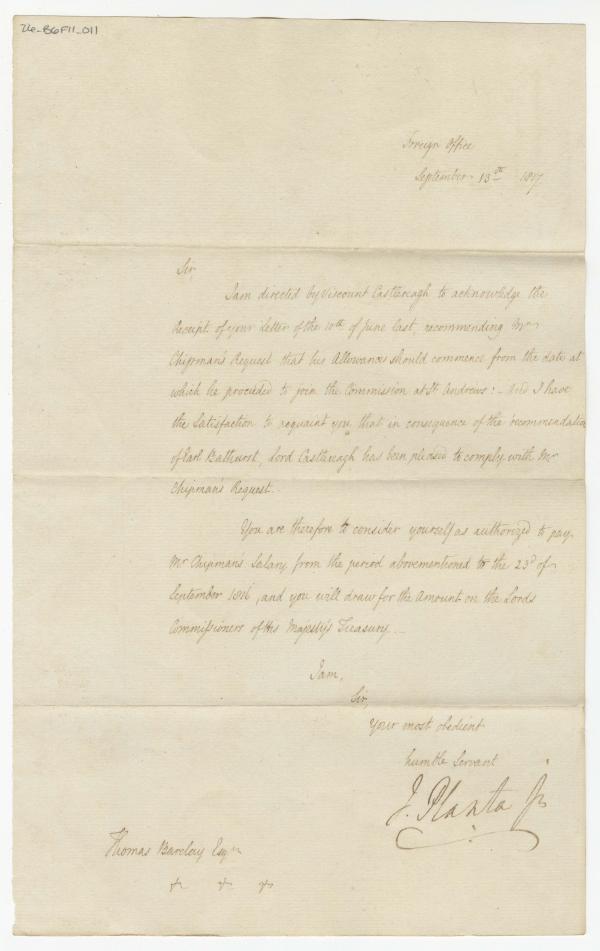 26-B6F11_011
Foreign Office
September 13th 1817
Sir,
I am directed by Viscount Castlereagh to acknowledge the
Receipt of your Letter of the 10th of June last, recommending Mr
Chipman's Request that his Allowances should commence from the date at
which he proceeded to join the Commission at St Andrews:- And I have
the Satisfaction to acquaint you, that in consequence of the recommendation
of Earl Bathurst, Lord Castlereagh has been pleased to comply with Mr
Chipman's Request.
You are therefore to consider yourself as authorized to pay
Mr Chipman's Salary from the period abovementioned to the 23d of
September 1816, and you will draw for the Amount on the Lords
Commissioners of His Majesty's Treasury.
I am,
Sir,
Your most obedient
humble Servant
J. Planta Jr
Thomas Barclay Esqre
+ + +